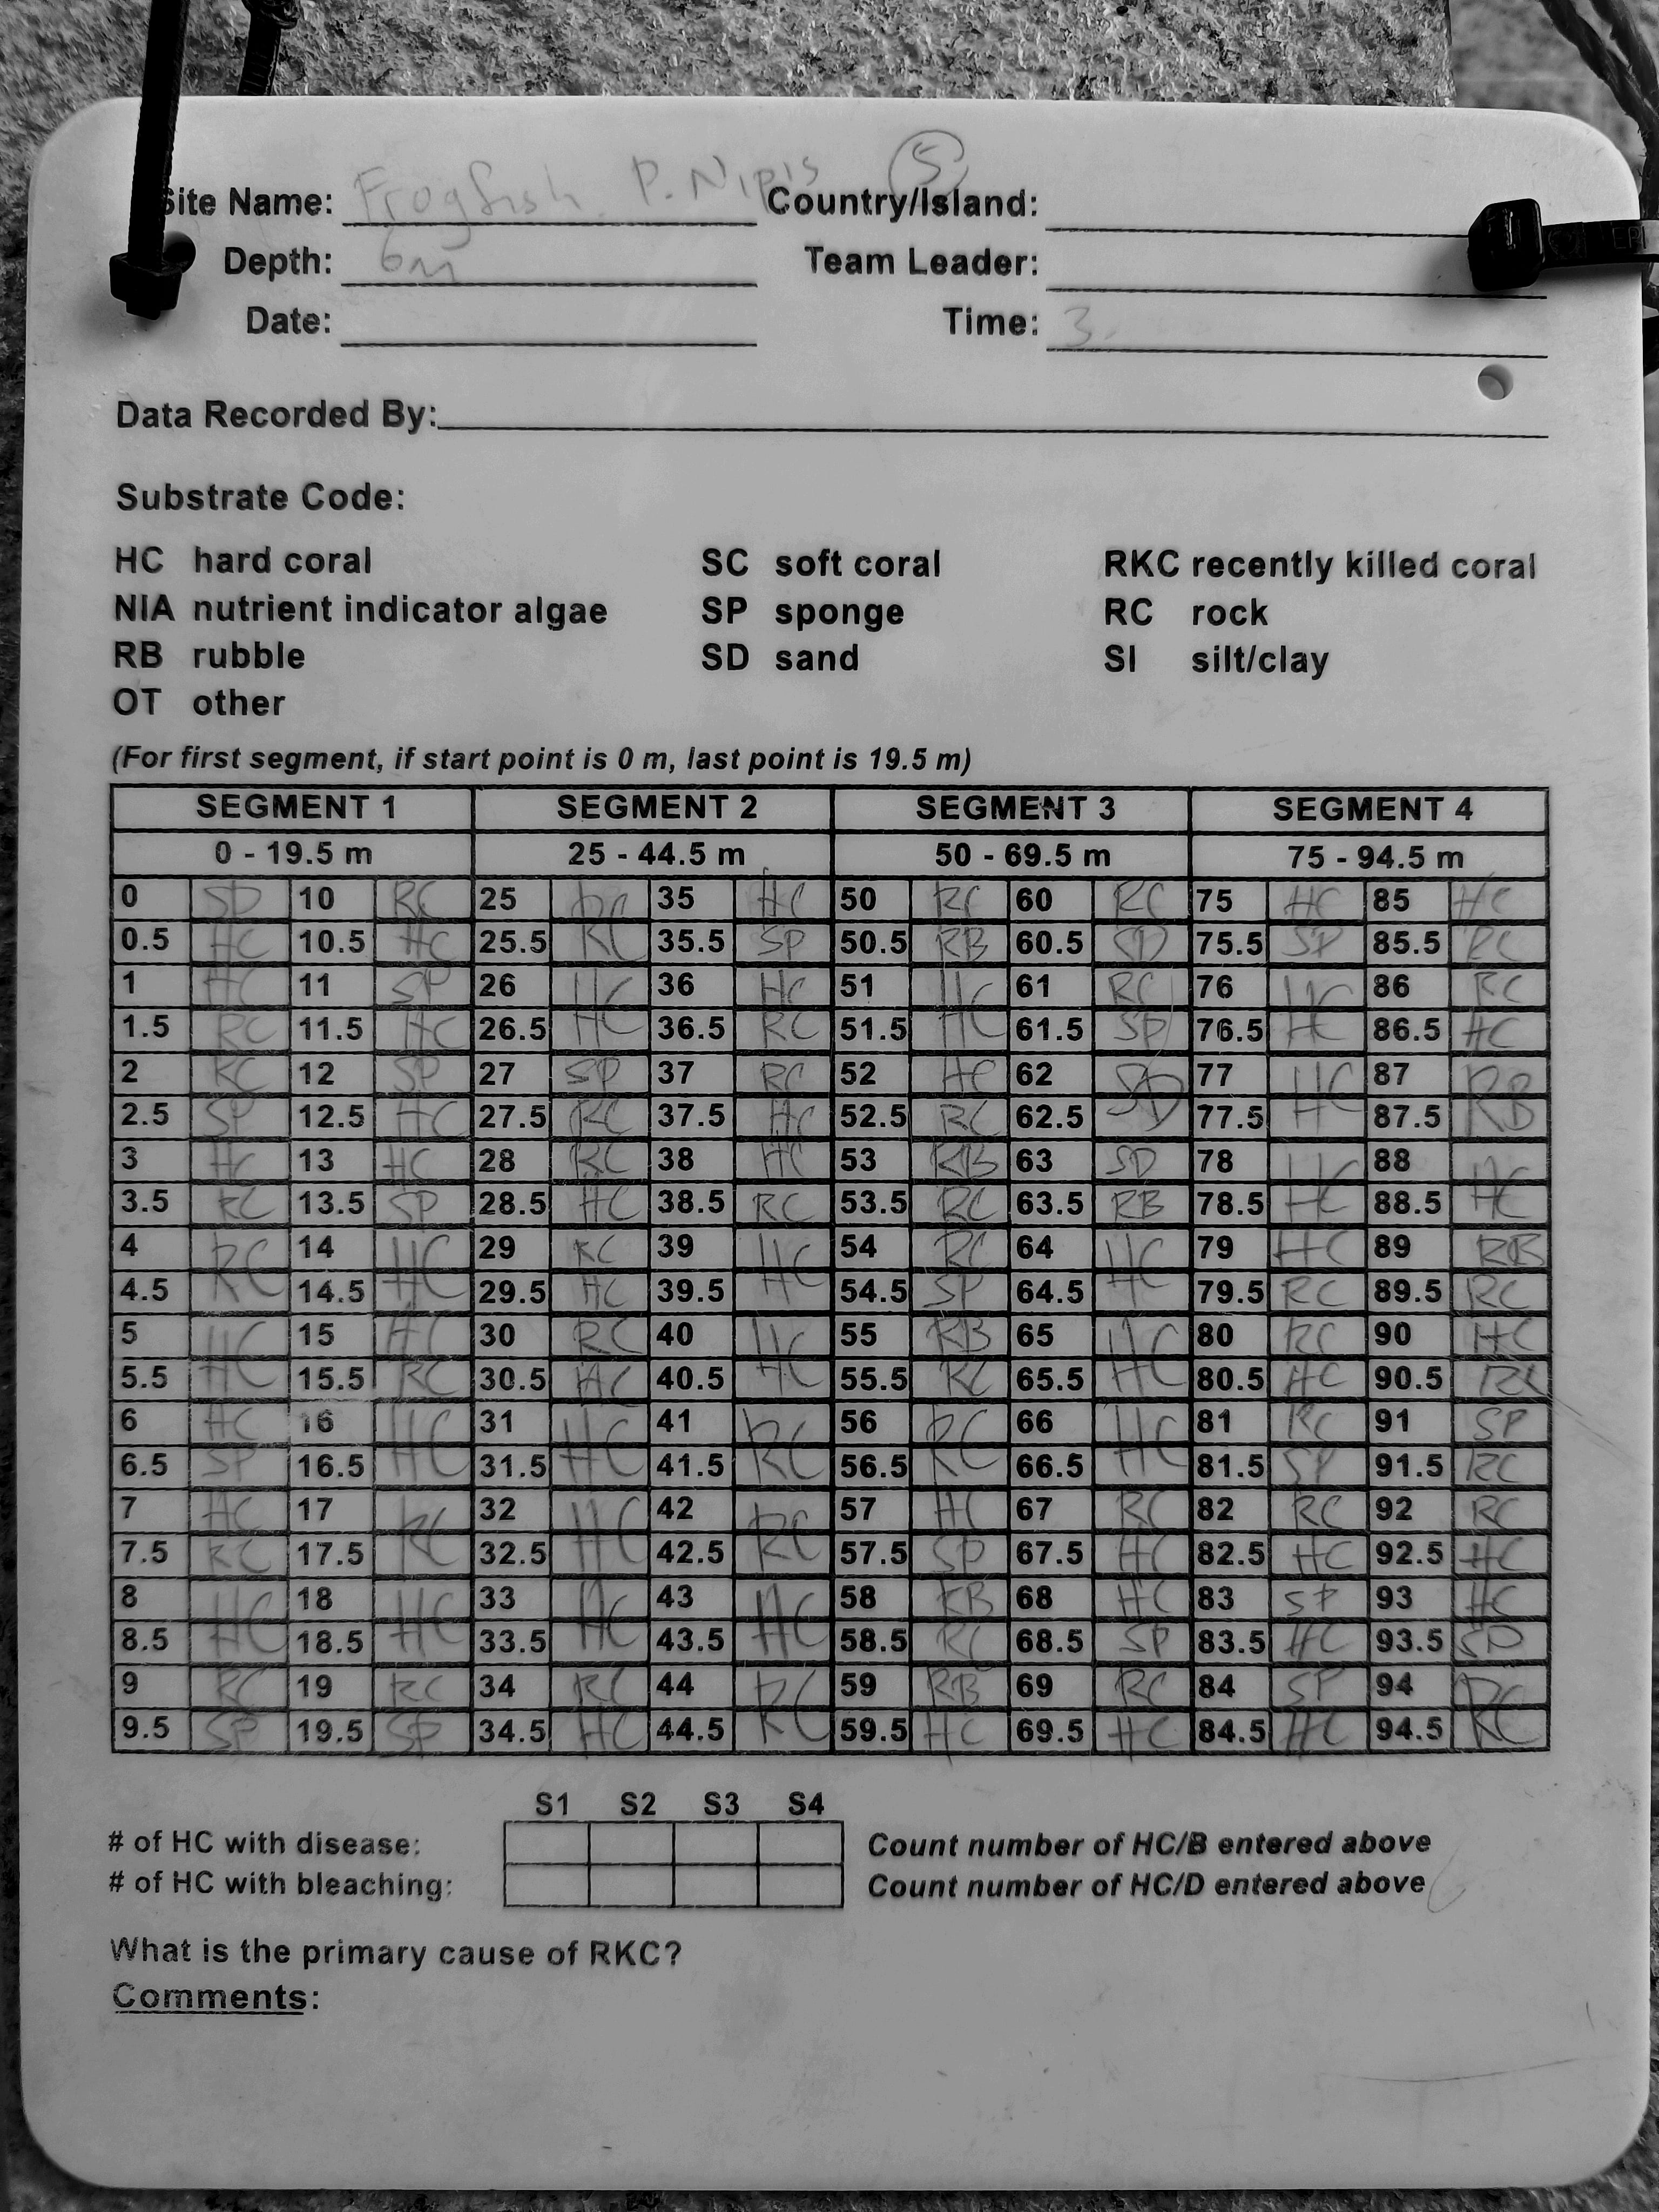 Site Name: Frogfish P. Nipis (5) Country/Island:
Depth: 6m Team Leader:
Date: Time: 3
Data Recorded By:
Substrate Code:
HC hard coral SC soft coral RKC recently killed coral
NIA nutrient indicator algae SP sponge RC rock
RB rubble SD sand SI silt/clay
OT other
(For first segment, if start point is 0 m, last point is 19.5 m)
SEGMENT 1 SEGMENT 2 SEGMENT 3 SEGMENT 4
0 - 19.5 m 25 - 44.5 m 50 - 69.5 m 75 - 94.5 m
0 SD 10 RC 25 RC 35 HC 50 RC 60 RC 75 HC 85 HC
0.5 HC 10.5 HC 25.5 RC 35.5 SP 50.5 RB 60.5 SD 75.5 SP 85.5 RC
1 HC 11 SP 26 HC 36 HC 51 HC 61 RC 76 HC 86 RC
1.5 RC 11.5 HC 26.5 HC 36.5 RC 51.5 HC 61.5 SP 76.5 HC 86.5 HC
2 RC 12 SP 27 SP 37 RC 52 HC 62 SD 77 HC 87 RB
2.5 SP 12.5 HC 27.5 RC 37.5 HC 52.5 RC 62.5 77.5 87.5
3 HC 13 HC 28 RC 38 HC 53 RB 63 SD 78 HC 88 HC
3.5 RC 13.5 SP 28.5 HC 38.5 RC 53.5 RC 63.5 RB 78.5 88.5
4 RC 14 HC 29 RC 39 HC 54 RC 64 HC 79 HC 89 RB
4.5 14.5 29.5 HC 39.5 54.5 SP 64.5 79.5 RC 89.5 RC
5 HC 15 HC 30 RC 40 HC 55 RB 65 HC 80 RC 90 HC
5.5 15.5 RC 30.5 HC 40.5 55.5 RC 65.5 80.5 HC 90.5 RC
6 HC 16 HC 31 HC 41 RC 56 RC 66 HC 81 RC 91 SP
6.5 SP 16.5 31.5 41.5 56.5 66.5 81.5 SP 91.5 RC
7 HC 17 RC 32 HC 42 RC 57 HC 67 RC 82 RC 92 RC
7.5 RC 17.5 32.5 42.5 57.5 SP 67.5 HC 82.5 HC 92.5 HC
8 HC 18 HC 33 HC 43 HC 58 RB 68 HC 83 SP 93 HC
8.5 18.5 33.5 43.5 58.5 RC 68.5 SP 83.5 HC 93.5 SP
9 RC 19 RC 34 RC 44 RC 59 RB 69 RC 84 SP 94 RC
9.5 SP 19.5 SP 34.5 HC 44.5 59.5 HC 69.5 HC 84.5 HC 94.5
S1 S2 S3 S4
# of HC with disease: Count number of HC/B entered above
# of HC with bleaching: Count number of HC/D entered above
What is the primary cause of RKC?
Comments: